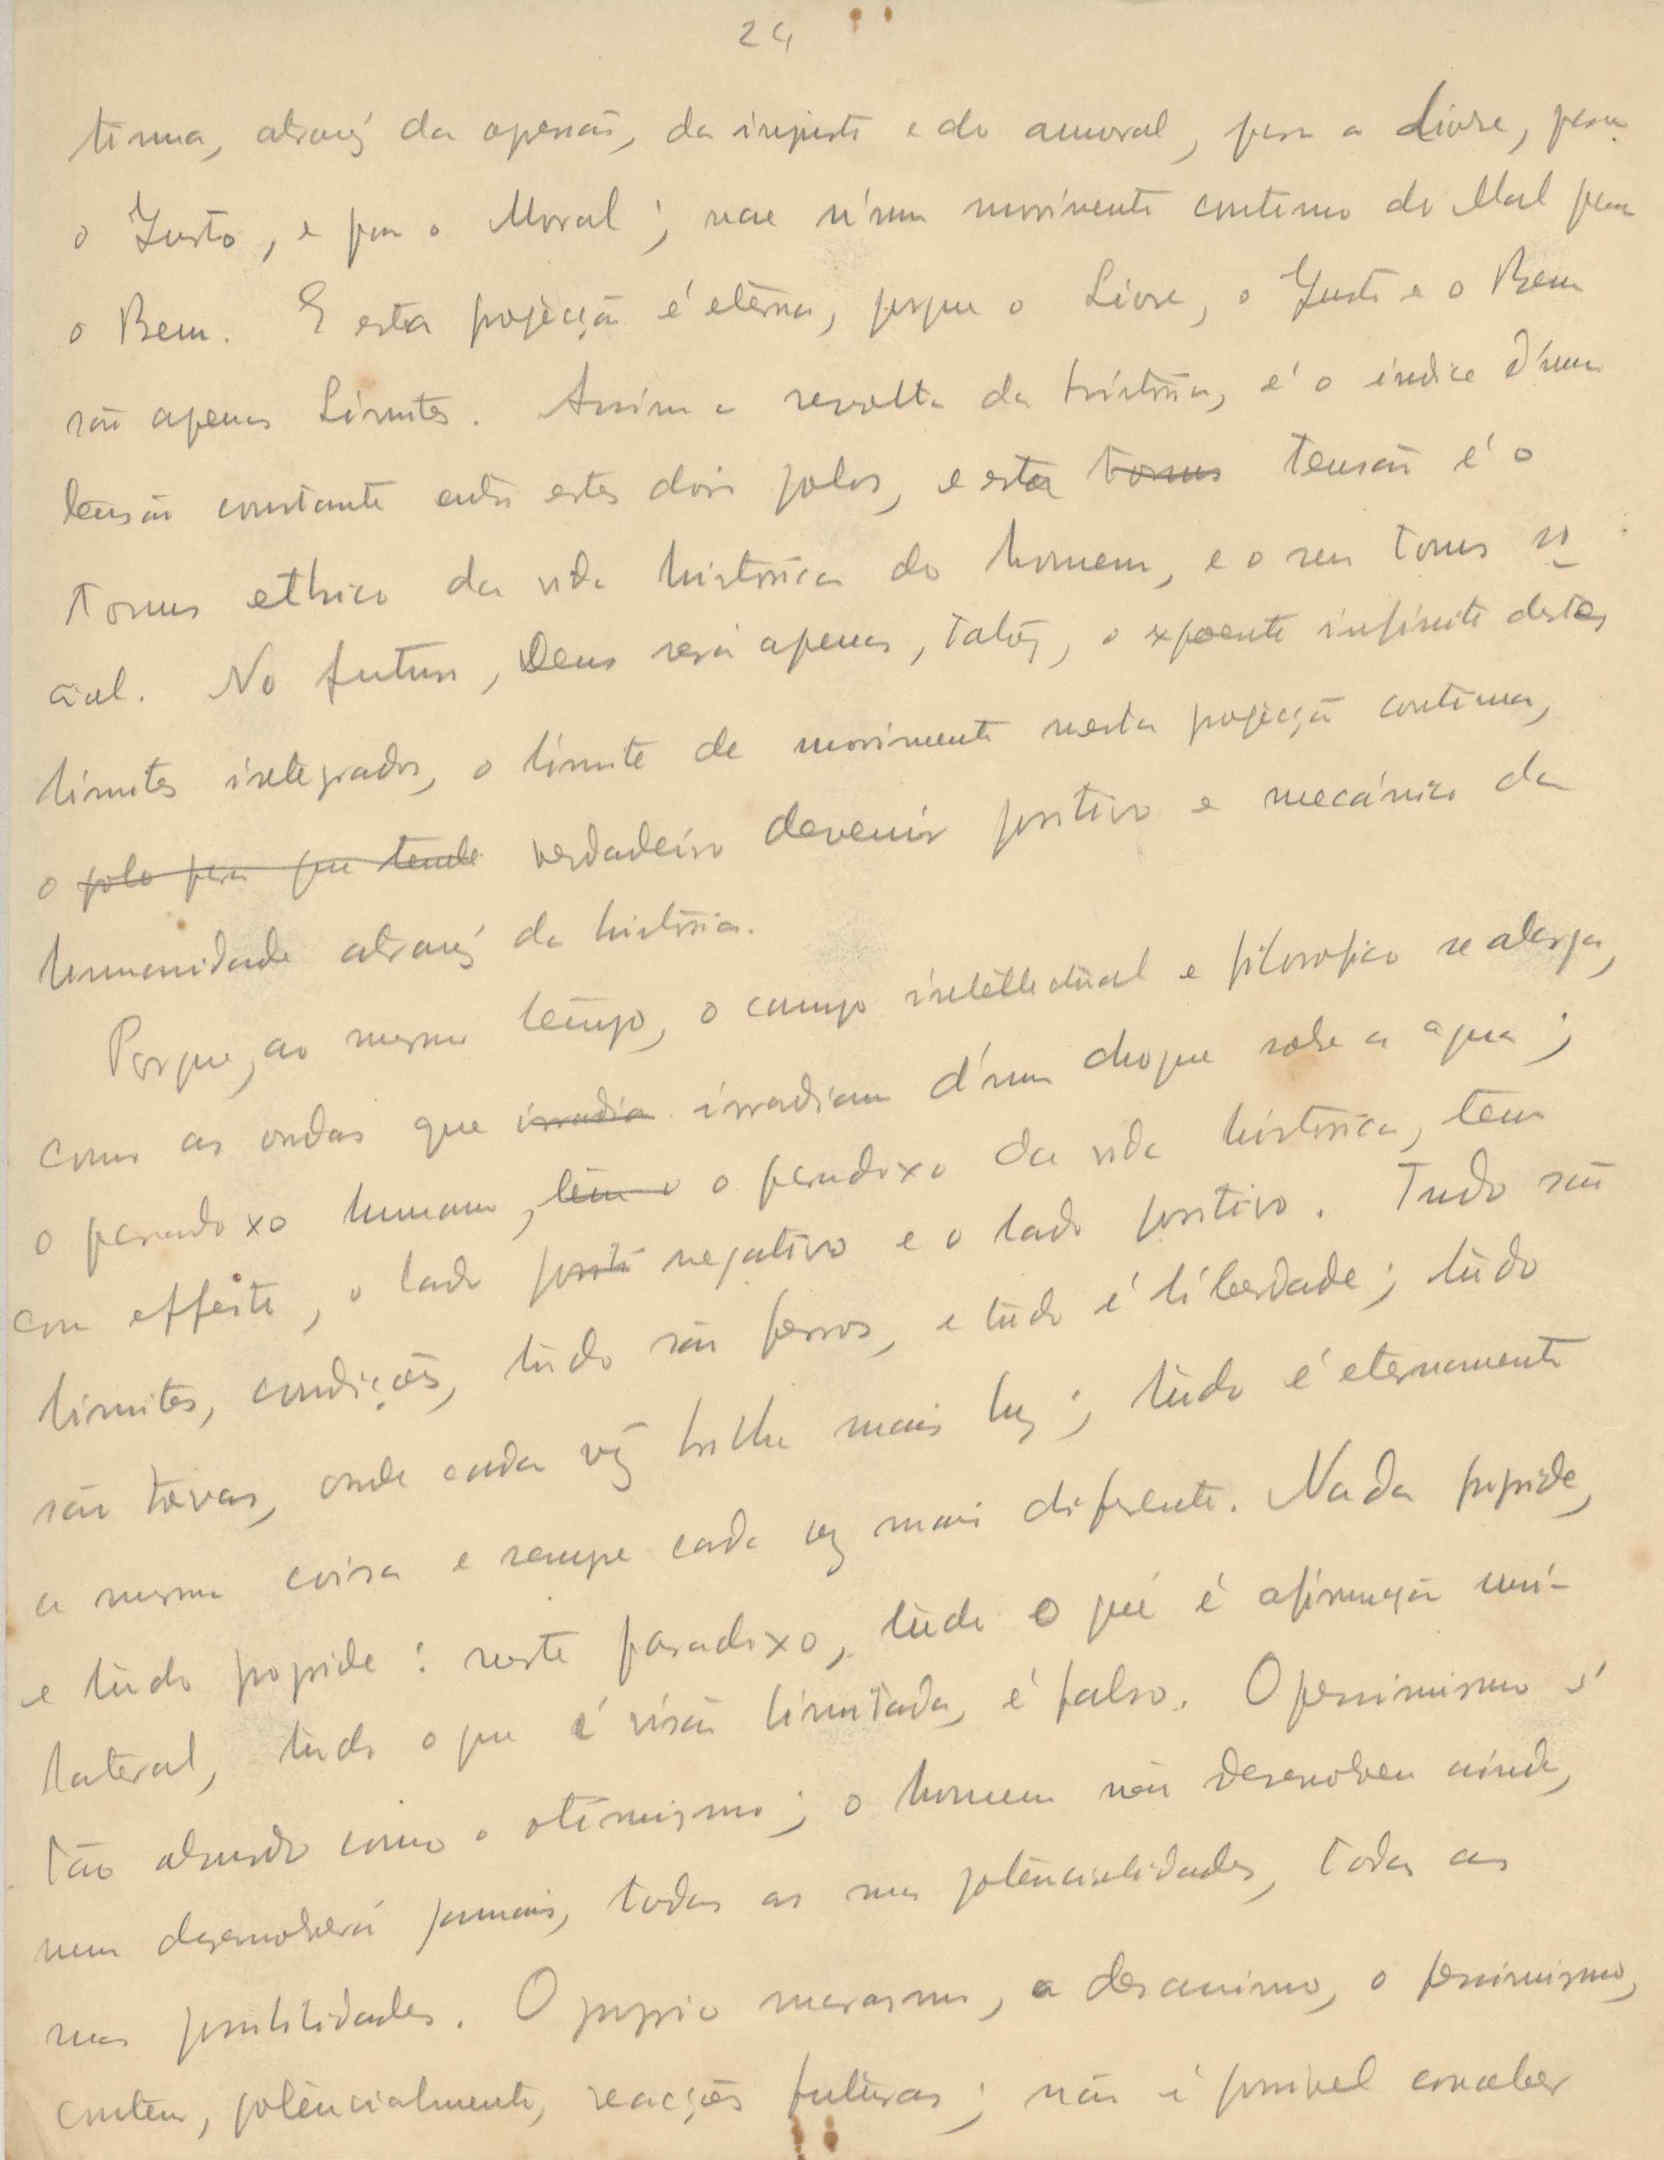 24
tinua, através da opressão, da injusto e do amoral, para o Livre, para
o Justo, e para o Moral; vae n'um movimento continuo do Mal para
o Bem. E esta projecção é eterna, porque o Livre, o Justo e o Bem
são apenas Limites. Assim a revolta da história, é o indice d'uma
tensão constante entre estes dois polos, e esta tonus tensão é o
tonus ethico da vida historica do homem, e o seu tonus so
cial. No futuro, Deus será apenas, talvez, o expoente infinito destes
limites integrados, o limite de movimento nesta projecção continua,
o polo para que tende verdadeiro devenir positivo e mecánico da
humanidade através da história.
Porque, ao mesmo tempo, o campo intellectual e filosofico se alarga,
como as ondas que irradia irradiam d'um choque sobre a agua;
o paradoxo humano, tem o o paradoxo da vida historica, tem
com effeito, o lado positi negativo e o lado positivo. Tudo são
limites, condições, tudo são ferros, e tudo é liberdade; tudo
são trevas, onde cada vez brilha mais luz; tudo é eternamente
a mesma coisa e sempre cada vez mais diferente. Nada progride,
e tudo progride: neste paradoxo, tudo o que é afirmação uni-
lateral, tudo o que é visão limitada, é falso. O pessimismo é
tão absurdo como o otimismo; o homem não desenvolveu ainda,
nem desenvolverá jamais, todas as suas potencialidades, todas as
suas possibilidades. O proprio marasmo, o desanimo, o pessimismo,
contem, potencialmente, reacções futuras; não é possivel conceber